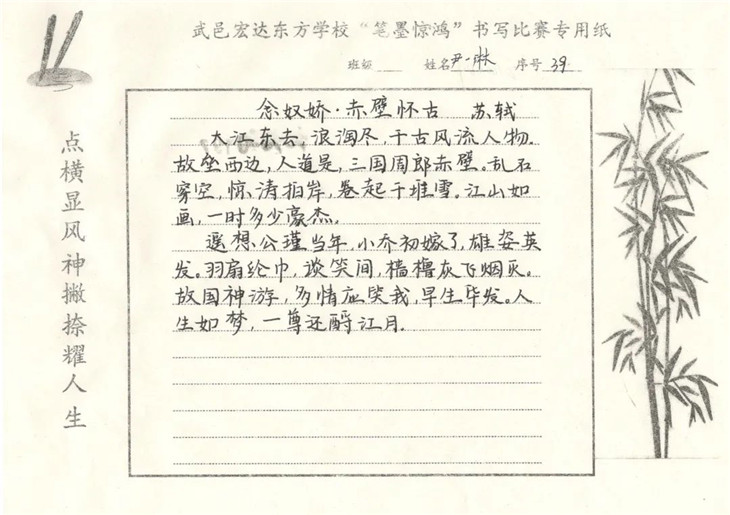 武邑宏达东方学校“笔墨惊鸿”书写比赛专用纸
班级 姓名 尹一琳 序号 39
点横显风神撇捺耀人生
念奴娇·赤壁怀古 苏轼
大江东去,浪淘尽,千古风流人物。
故垒西边,人道是,三国周郎赤壁。乱石
穿空,惊涛拍岸,卷起千堆雪。江山如
画,一时多少豪杰。
遥想公瑾当年,小乔初嫁了,雄姿英
发。羽扇纶巾,谈笑间,樯橹灰飞烟灭。
故国神游,多情应笑我,早生华发。人
生如梦,一尊还酹江月.